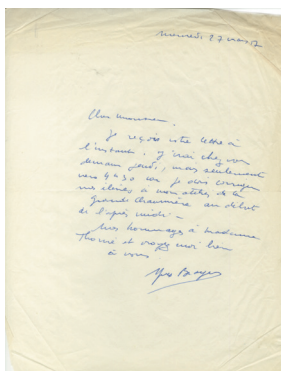 mercredi 27 mars 57
Cher monsieur,
Je reçois votre lettre à
l'instant. J'irai chez vous
demain jeudi, mais seulement
vers 4h30 car je dois corriger
mes élèves à mon atelier de la
Grande Chaumière au début
de l'après midi -
Mes hommages à madame
et croyez moi bien
à vous
Yves Brayer